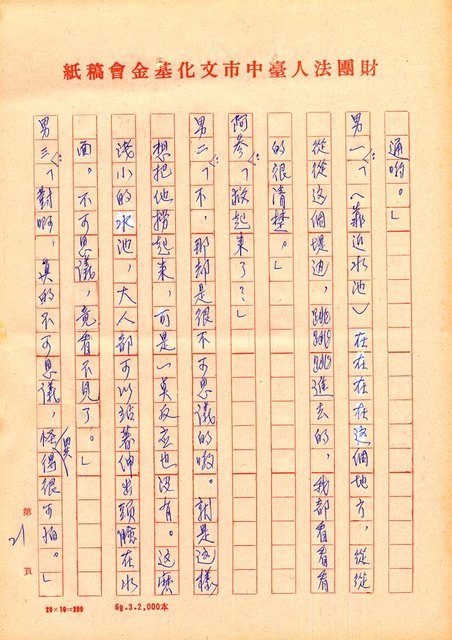 財團法人臺中市文化基金會稿紙
通喲。」
男一：「（靠近水池）在在在在這個地方，從從
從從這個堤边，跳跳跳進去的，我都看看看
的很清楚。」
阿琴：「救起來了？」
男二：「不，那却是很不可思議的喲。就是這樣
想把他撈起來，可是一莫反应也没有。這麽
浅小的水池，大人都可以站著伸出頭臉在水
面。不可思議，竟看不見了。」
男三：「對啊，真的不可思議，怪異得很可怕。」
第 21 頁
20×10=200
68.3.2,000本